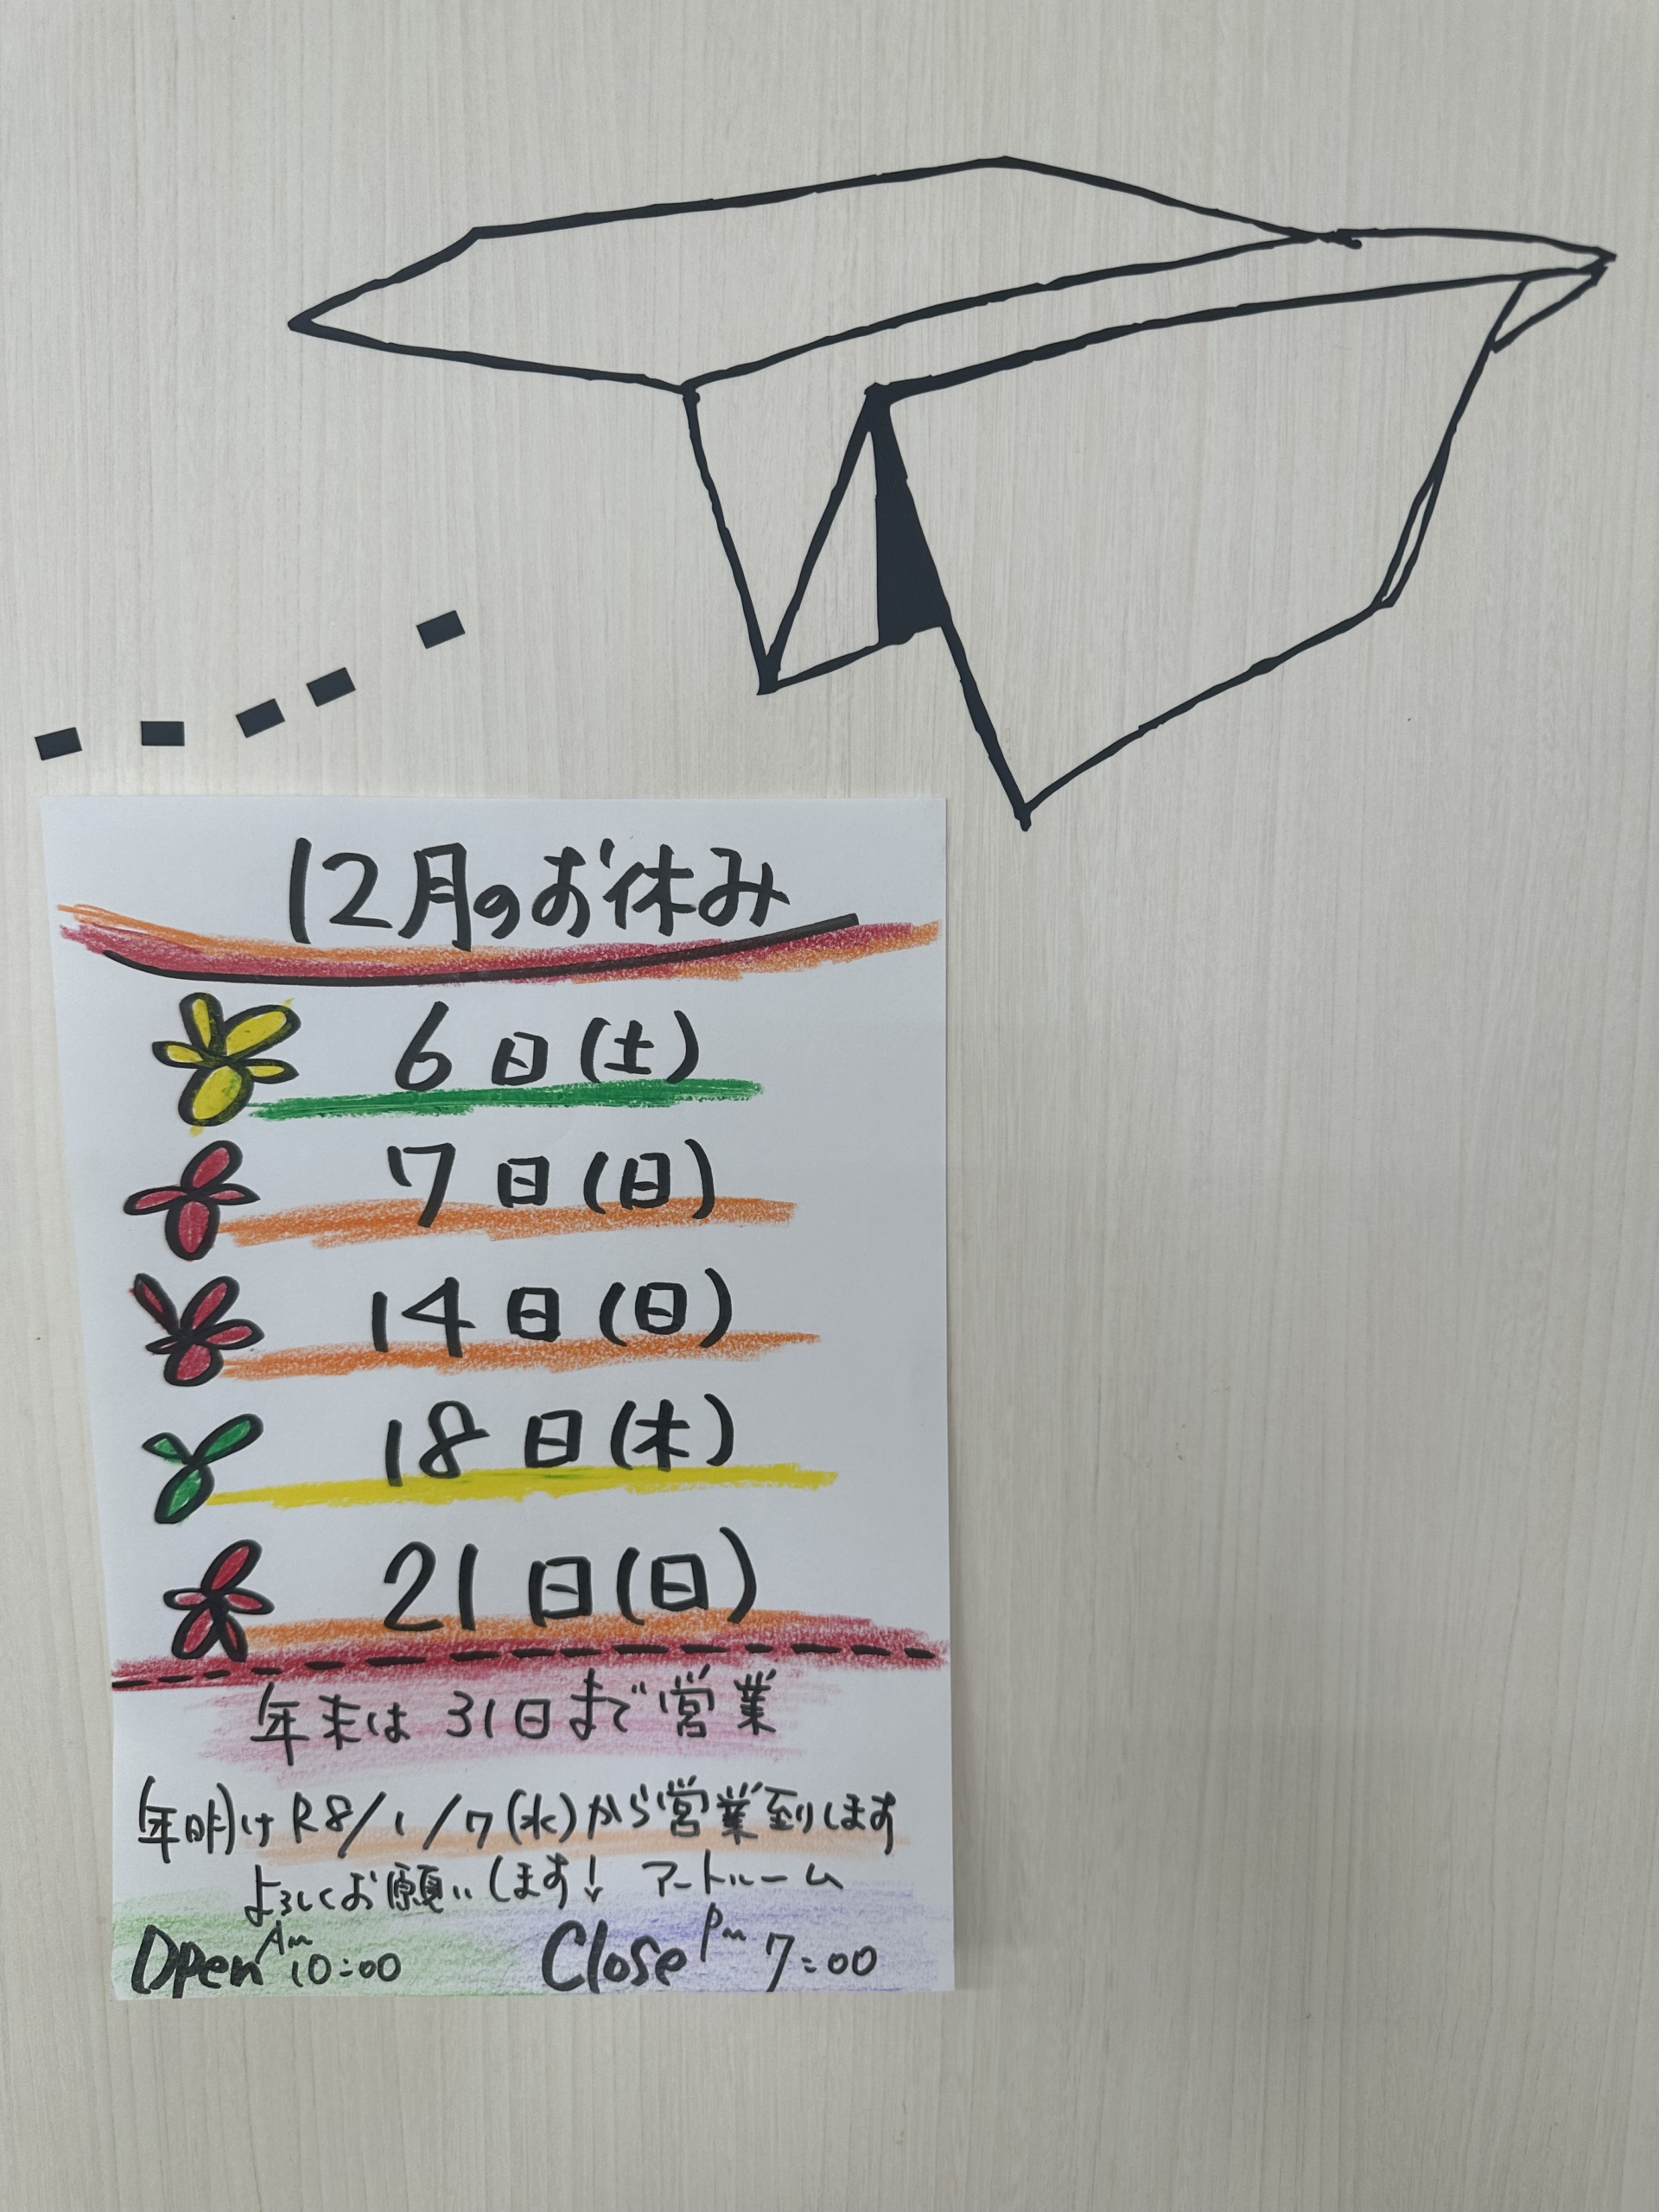 12月のお休み
6日(土)
7日(日)
14日(日)
18日(木)
21日(日)
年末は31日まで営業
年明けR8/1/7(水)から営業致します
よろしくお願いします! アートルーム
Open Am 10:00 Close Pm 7:00